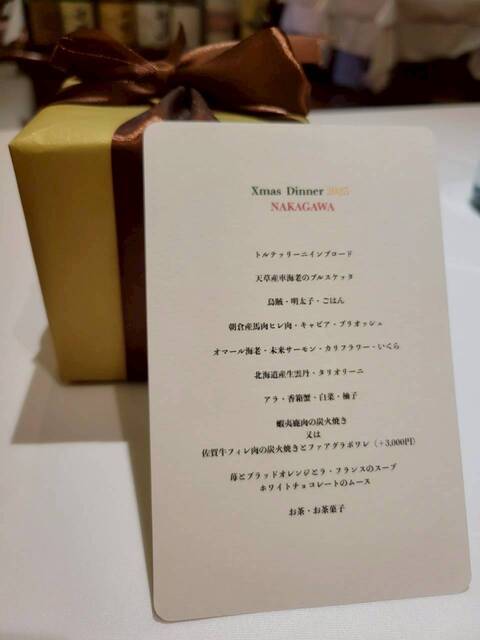 Xmas Dinner 2025
NAKAGAWA
トルテッリーニインブロード
天草産車海老のブルスケッタ
烏賊・明太子・ごはん
朝倉産馬肉ヒレ肉・キャビア・ブリオッシュ
オマール海老・未来サーモン・カリフラワー・いくら
北海道産生雲丹・タリオリーニ
アラ・香箱蟹・白菜・柚子
蝦夷鹿肉の炭火焼き
又は
佐賀牛フィレ肉の炭火焼きとフォアグラポワレ（+3,000円）
苺とブラッドオレンジとラ・フランスのスープ
ホワイトチョコレートのムース
お茶・お茶菓子